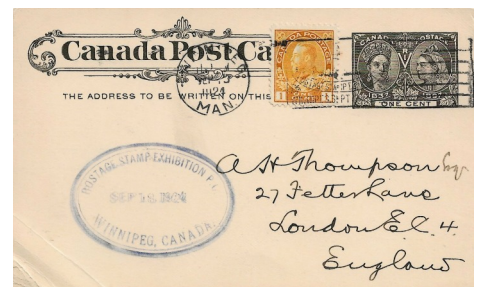 Canada Post Ca
THE ADDRESS TO BE WRITTEN ON THIS
MAN.
1924
1
CANADA POSTAGE
1837
1897
ONE CENT
POSTAGE STAMP EXHIBITION P.O.
SEP 18 1924
WINNIPEG, CANADA.
A H Thompson Esq
27 Fetter Lane
London E.C. 4.
England